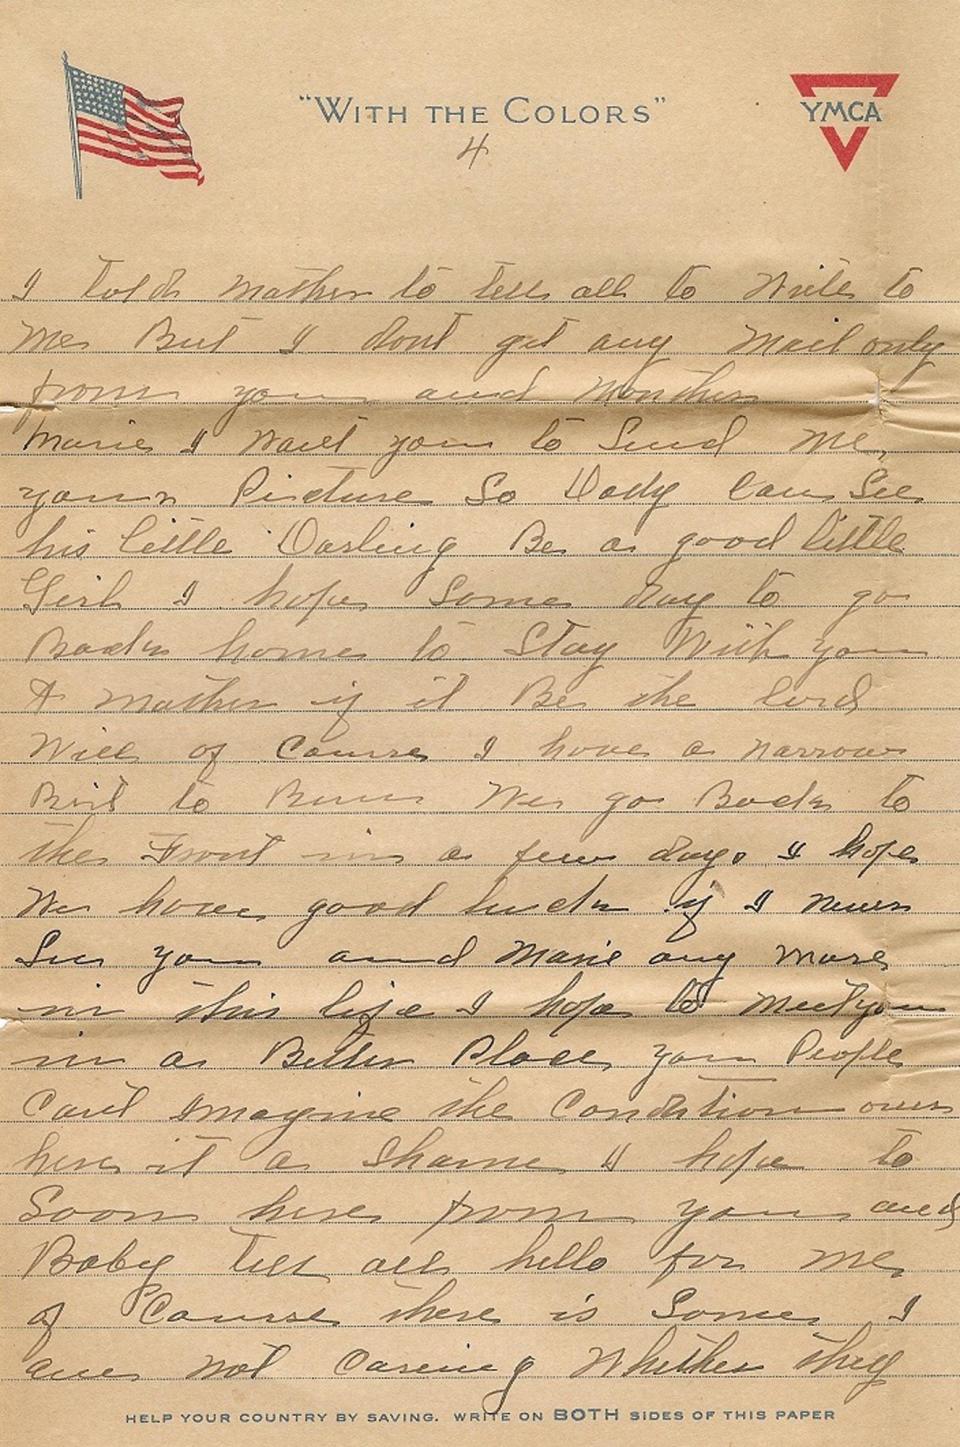 "WITH THE COLORS"
YMCA
4
I told mother to tell all to Write to
me But I dont get any Mail only
from you and Monther
Marie I Want you to Send me,
your Picture So Dady Can See
his little Darling Be a good little
Girl I hope Some day to go
Back home to Stay With you
& mother if it Be the lord
Will of Course I have a narrow
to Run We go Back to
the Front in a few days I hope
We have good luck if I never
See you and Marie any more
in this life I hope to meet you
in a Better Place you People
Cant Imagine the Condition over
here it a Shame I hope to
Soon here from you and
Baby Tell all hello for me
of Course there is Some I
am not Careing Whether they
HELP YOUR COUNTRY BY SAVING. WRITE ON BOTH SIDES OF THIS PAPER